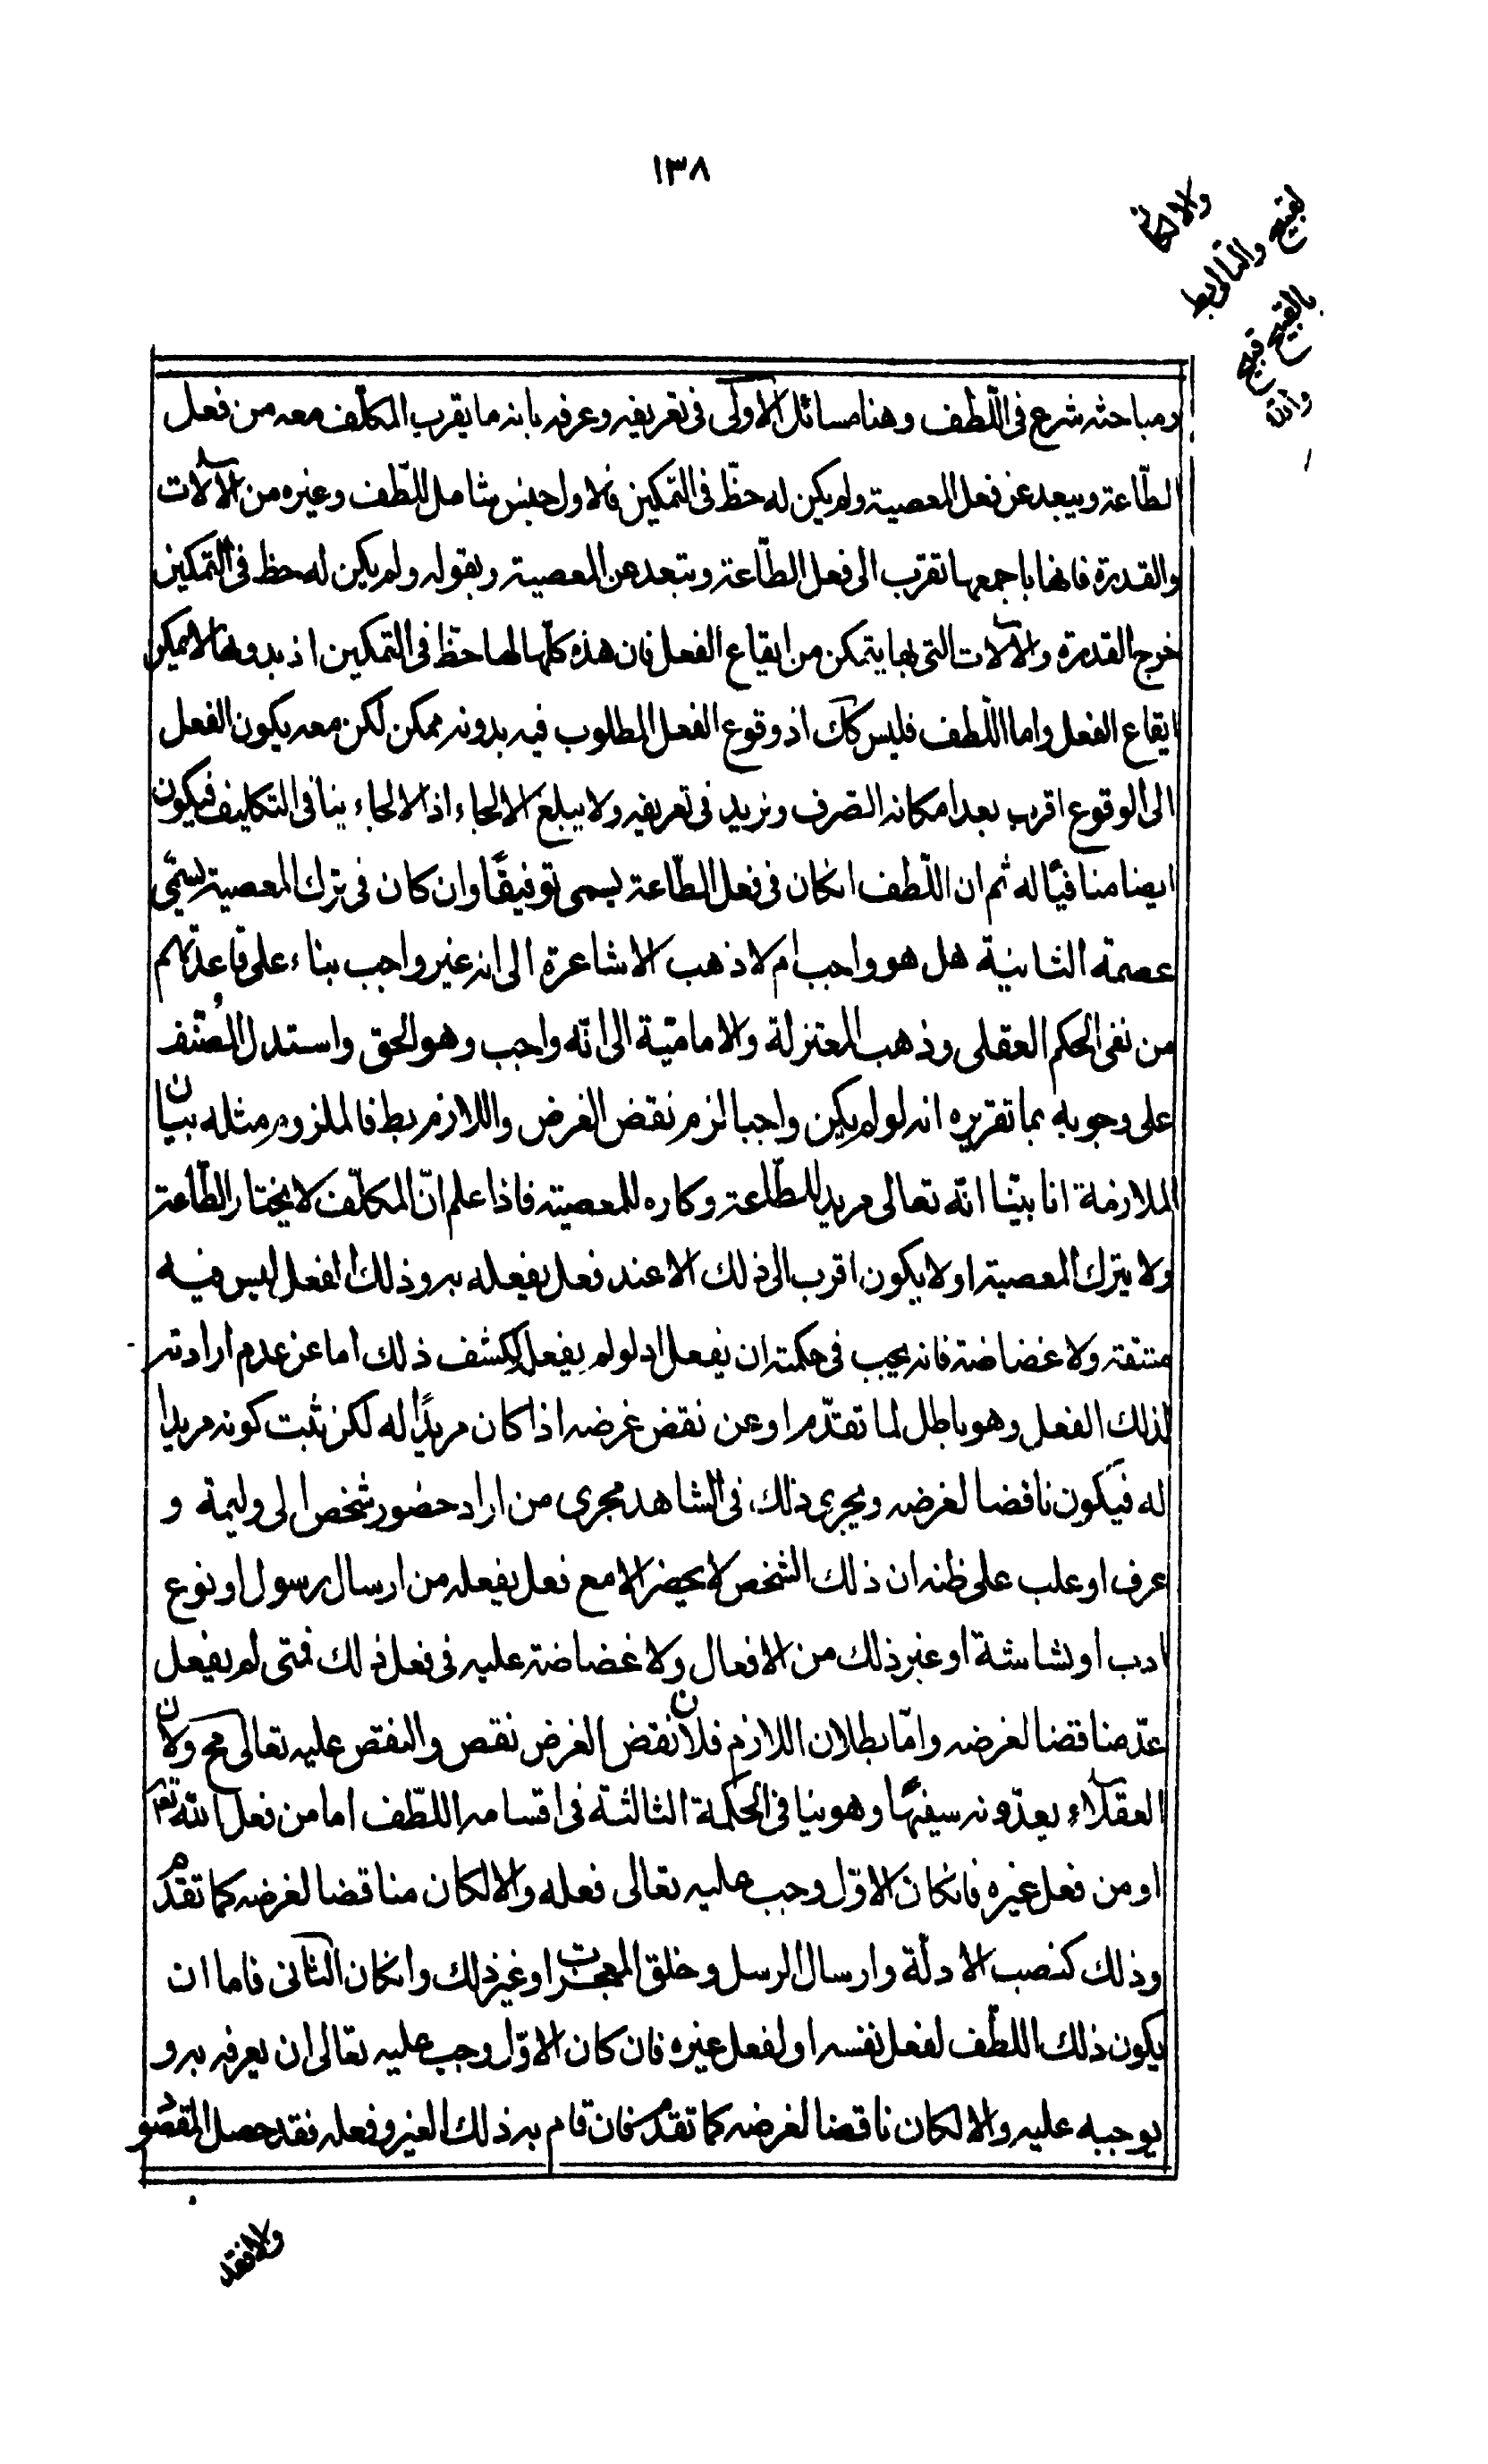 ١٣٨
ولا لكان
لقبح والتالى بط
بالقبيح قبيح
والله
ومباحثه شرع فى اللّطف وهنا مسائل الاولى فى تعريفه وعرفه بانه ما يقرب المكلّف معه من فعل
الطّاعة ويبعد عن فعل المعصية ولم يكن له حظّ فى التمكين فالاول جنس شامل للّطف وغيره من الآلات
والقدرة فانها باجمعها تقرب الى فعل الطّاعة وتبعد عن المعصية وبقوله ولم يكن له حظ فى التمكين
خرج القدرة والآلات التى بها يتمكن من ايقاع الفعل فان هذه كلّها لها حظّ فى التمكين اذ بدونها لا يمكن
ايقاع الفعل واما اللّطف فليس كك اذ وقوع الفعل المطلوب فيه بدونه ممكن لكن معه يكون الفعل
الى الوقوع اقرب بعد امكانه الصّرف ونزيد فى تعريفه ولا يبلغ الالجاء اذ الالجاء ينافى التكليف فيكون
ايضا منافيًا له ثم ان اللّطف انكان فى فعل الطّاعة يسمى توفيقًا وان كان فى ترك المعصية يسمّى
عصمة الثانية هل هو واجب ام لا ذهب الاشاعرة الى انه غير واجب بناء على قاعدتهم
من نفى الحكم العقلى وذهب المعتزلة والاماميّة الى انّه واجب وهو الحق واستدل المصنّف
على وجوبه بما تقريره انه لو لم يكن واجبا لزم نقض الغرض واللازم بط فالملزوم مثله بيان
الملازمة انا بيّنا انّه تعالى مريد للطّاعة وكاره للمعصية فاذا علم انّ المكلّف لا يختار الطّاعة
ولا يترك المعصية او لا يكون اقرب الى ذلك الا عند فعل يفعله به وذلك الفعل ليس فيه
مشقة ولا غضاضة فانه يجب فى حكمته ان يفعل اذ لو لم يفعل لكشف ذلك اما عن عدم ارادته
لذلك الفعل وهو باطل لما تقدّم او عن نقض غرضه اذا كان مريدًا له لكن ثبت كونه مريدا
له فيكون ناقضا لغرضه ويجرى ذلك فى الشاهد مجرى من اراد حضور شخص الى وليمة و
عرف او غلب على ظنه ان ذلك الشخص لا يحضر الا مع فعل يفعله من ارسال رسول او نوع
ادب او بشاشة او غير ذلك من الافعال ولا غضاضة عليه فى فعل ذلك فمتى لم يفعل
عدّ مناقضا لغرضه وامّا بطلان اللازم فلان نقض الغرض نقص والنقص عليه تعالى مح ولان
العقلاء يعدّونه سفيهًا وهو ينافى الحكمة الثالثة فى اقسامه اللطّف اما من فعل الله تعم
او من فعل غيره فانكان الاوّل وجب عليه تعالى فعله والا لكان مناقضا لغرضه كما تقدّم
وذلك كنصب الادلّة وارسال الرسل وخلق المعجزات او غير ذلك وانكان الثانى فاما ان
يكون ذلك اللطّف لفعل نفسه او لفعل غيره فان كان الاوّل وجب عليه تعالى ان يعرفه به و
يوجبه عليه والا لكان ناقضا لغرضه كما تقدّم فان قام به ذلك الغير وفعله فقد حصل المقصود
والا فقد